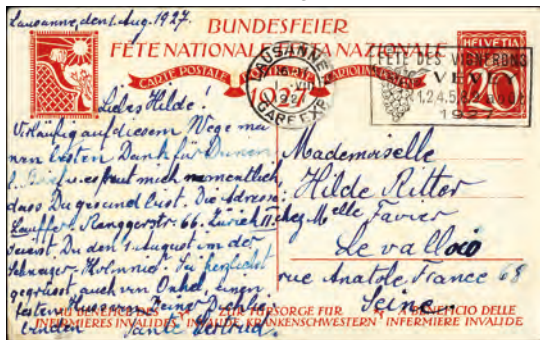 Lausanne, den 1. Aug. 1927.
BUNDESFEIER
FÊTE NATIONALE FESTA NAZIONALE
CARTE POSTALE
1927
LAUSANNE
1. VIII
1927
GARE EXP.
FÊTE DES VIGNERONS
VEVEY
1.2.4.5.8.9 AOÛT
1927
HELVETIA
20
Liebe Hilde!
Vorläufig auf diesem Wege mei
nen besten Dank für Deinen
l. Brief, es freut mich namentlich
dass Du gesund bist. Die Adresse:
Lauffer, Ranggerstr. 66. Zürich II.
Du den 1. August in der
Schweizer-Kolonie? Sei herzlichst
gegrüsst auch von Onkel, einen
festen Kuss von Deiner Dich lie-
benden Tante Gertrud.
Mademoiselle
Hilde Ritter
chez Melle Favier
Levallois
rue Anatole France 68
Seine
AU BENEFICE DES INFIRMIERES INVALIDES
ZUR FÜRSORGE FÜR INVALIDE KRANKENSCHWESTERN
A BENEFICIO DELLE INFERMIERE INVALIDE